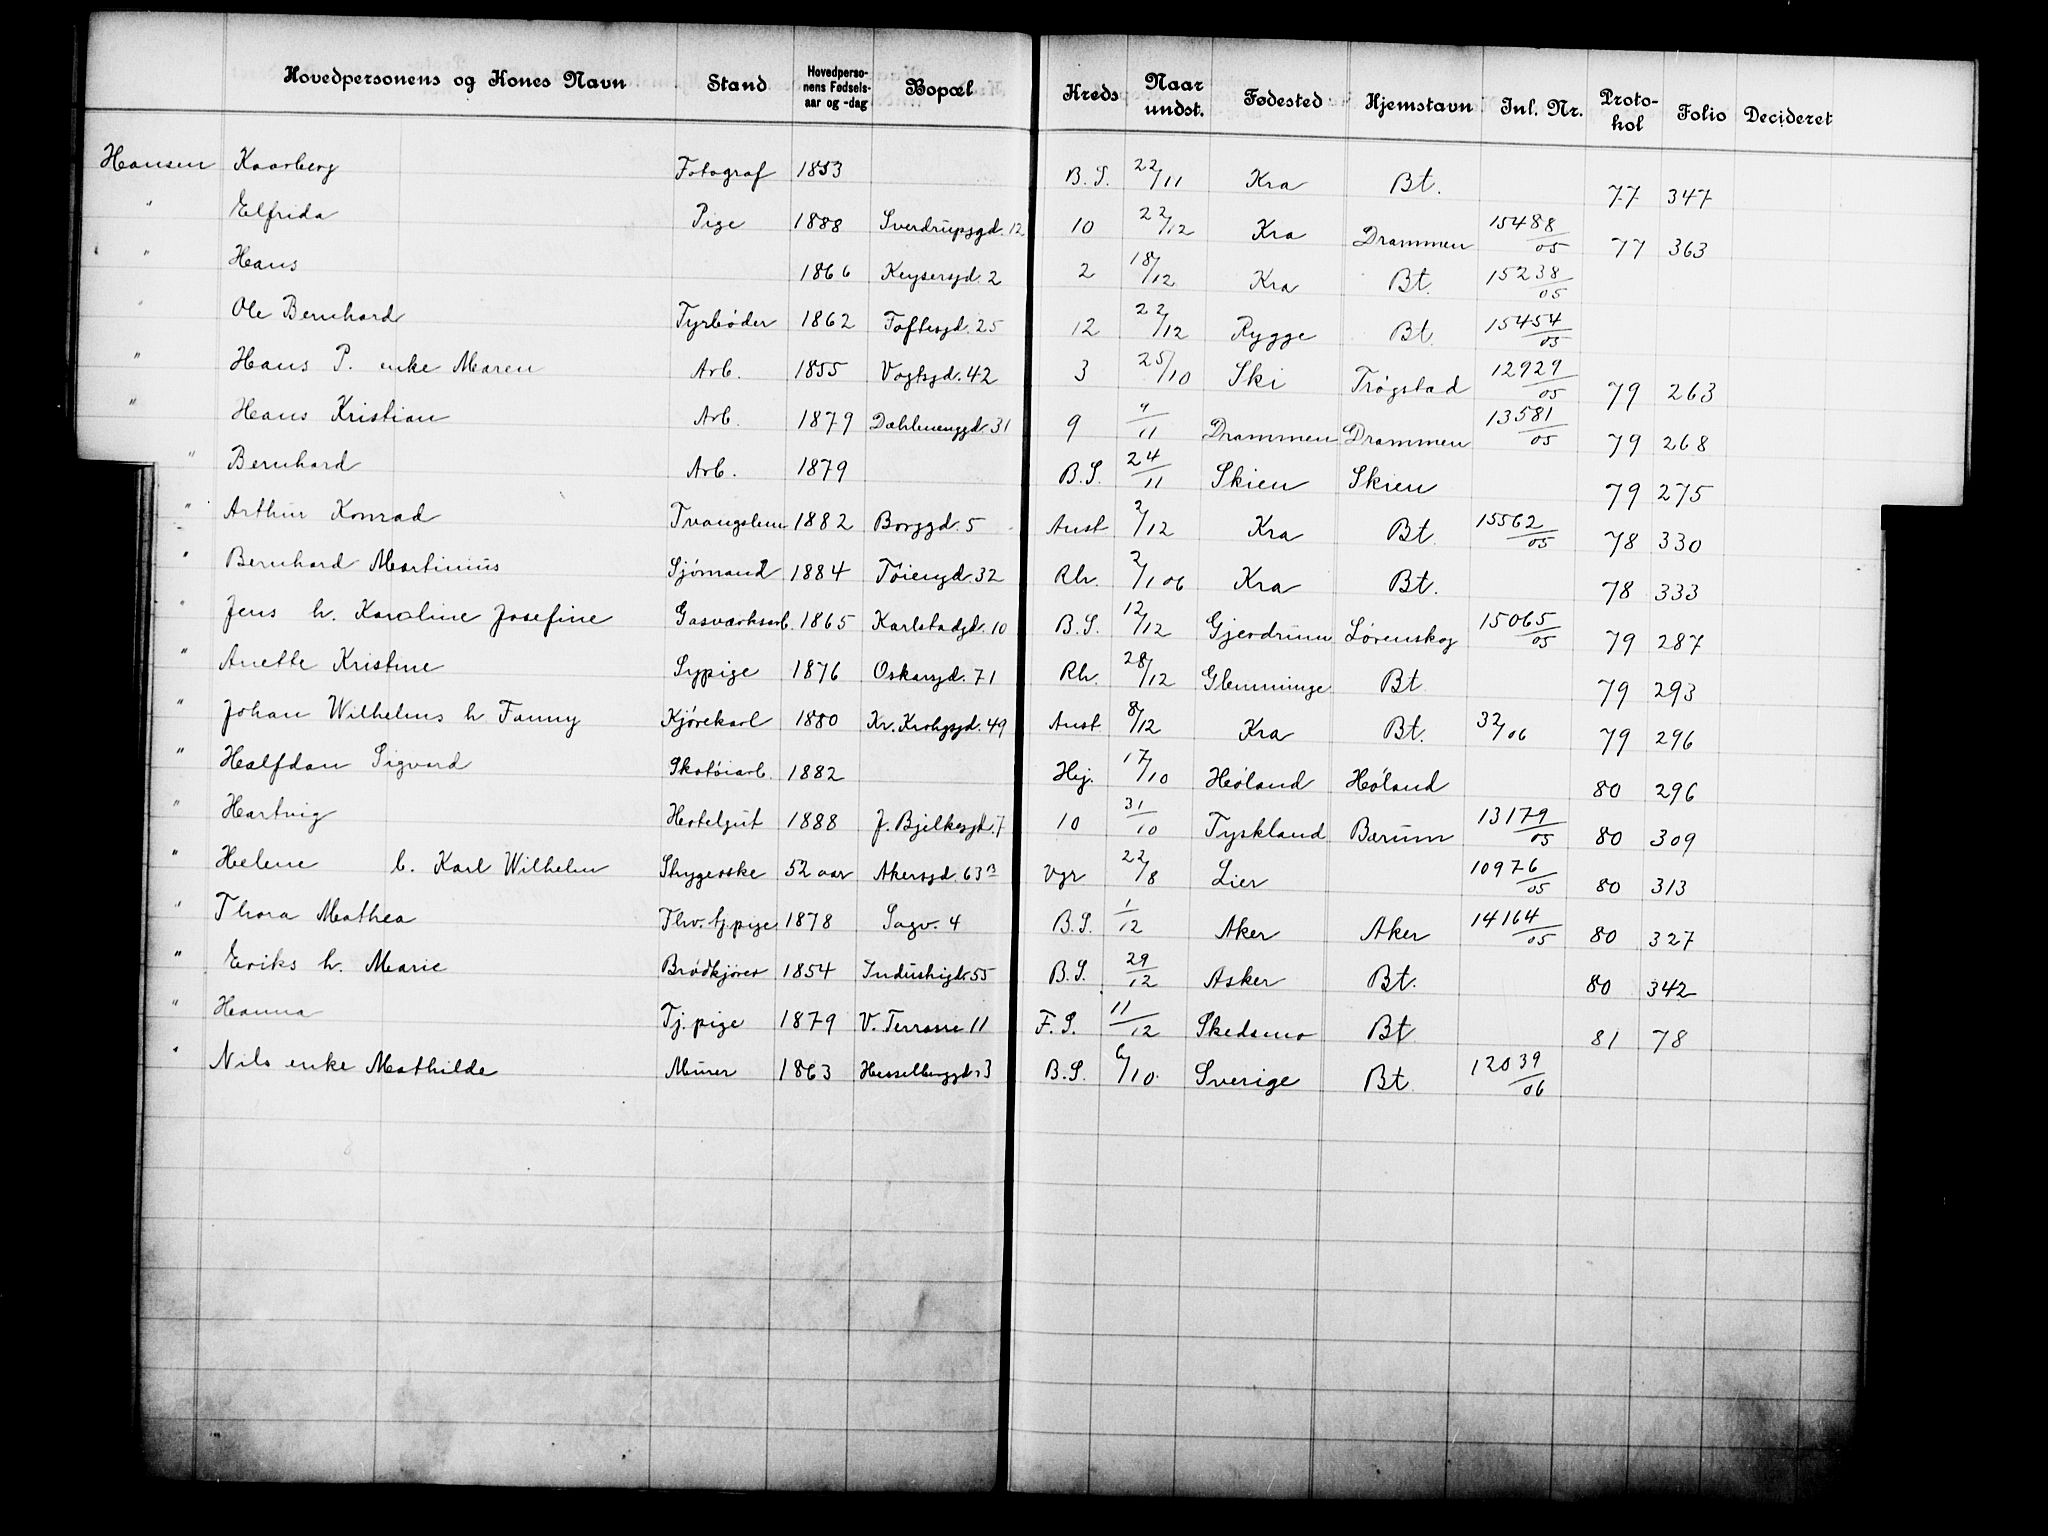 Hovedpersonens og Kones Navn Stand Hovedperso-nens Fødsels-aar og -dag Bopæl Kreds Naar undst. Fødested Hjemstavn Inl. Nr. Proto-kol Folio Decideret
Hansen Kaarberg Fotograf 1853 B. S. 22/11 Kra Bt. 77 347
" Elfrida Pige 1888 Sverdrupsgd. 12 10 22/12 Kra Drammen 15488/05 77 363
" Hans 1866 Keysersgd. 2 2 18/12 Kra Bt. 15238/05
" Ole Bernhard Fyrbøder 1862 Toftesgd. 25 12 22/12 Rygge Bt. 15454/05
" Hans P. enke Maren Arb. 1855 Vogtsgd. 42 3 25/10 Ski Trøgstad 12929/05 79 263
" Hans Kristian Arb. 1879 Dahlenenggd. 31 9 /11 Drammen Drammen 13581/05 79 268
" Bernhard Arb. 1879 B. S. 24/11 Skien Skien 79 275
" Arthur Konrad Tvangslem 1882 Borggd. 5 Anst 2/12 Kra Bt. 15562/05 78 330
" Bernhard Martinius Sjömand 1884 Töiengd. 32 Rh. 2/1 06 Kra Bt. 78 333
" Jens h. Karoline Josefine Gasværksarb. 1865 Karlstadgd. 10 B. S. 12/12 Gjerdrum Lörenskog 15065/05 79 287
" Anette Kristine Sypige 1876 Oskarsgd. 71 Rh. 28/12 Glemminge Bt. 79 293
" Johan Wilhelms h Fanny Kjörekarl 1880 Kr. Krohgsgd. 49 Anst 8/12 Kra Bt. 32/06 79 296
" Halfdan Sigvard Skotöiarb. 1882 Hej. 17/10 Höland Höland 80 296
" Hartvig Hotelgut 1888 J. Bjelkesgd. 7 10 31/10 Tyskland Bærum 13179/05 80 309
" Helene b. Karl Wilhelm Strygerske 52 aar Akersgd. 63 B Vgr 22/8 Lier 10976/05 80 313
" Thora Mathea Fhv. tj.pige 1878 Sagv. 4 B. S. 1/12 Aker Aker 14164/05 80 327
" Eriks h. Marie Brödkjörer 1854 Industrigd. 55 B. S. 29/12 Asker Bt. 80 342
" Hanna Tj. pige 1879 V. Terrasse 11 F. S. 11/12 Skedsmo Bt 81 78
" Nils enke Mathilde Murer 1863 Hesselberggd. 3 B. S. 6/10 Sverige Bt. 12039/06